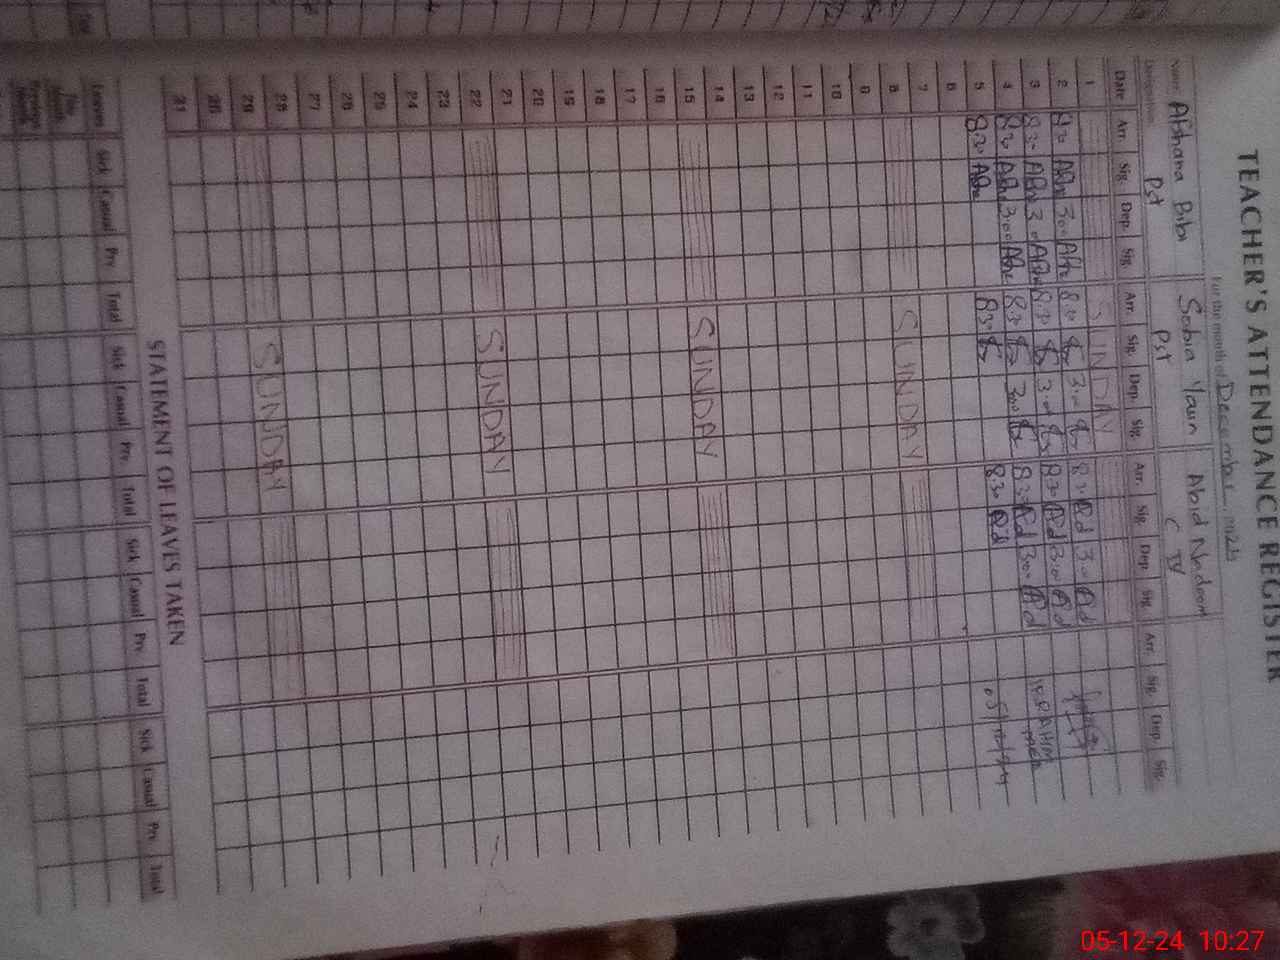 TEACHER'S ATTENDANCE REGISTER
For the month of December
Name Afshana Bibi Sobia Yasin Abid Nadeem
Designation Pst Pst CTV
Date Arr. Sig. Dep. Sig. Arr. Sig. Dep. Sig. Arr. Sig. Dep. Sig. Arr. Sig. Dep. Sig.
1 SUNDAY
2 8.30 3.00 8.30 3.00 8.30 3.00
3 8.30 3.00 8.30 3.00 8.30 3.00
4 8.30 3.00 8.30 3.00 8.30 3.00
5 8.30 8.30 8.30 05/12/24
6
7
8 SUNDAY
9
10
11
12
13
14
15 SUNDAY
16
17
18
19
20
21
22 SUNDAY
23
24
25
26
27
28
29 SUNDAY
30
31
STATEMENT OF LEAVES TAKEN
Leaves Sick Casual Prv. Total Sick Casual Prv. Total Sick Casual Prv. Total Sick Casual Prv. Total
This Month
Previous Month
05-12-24 10:27